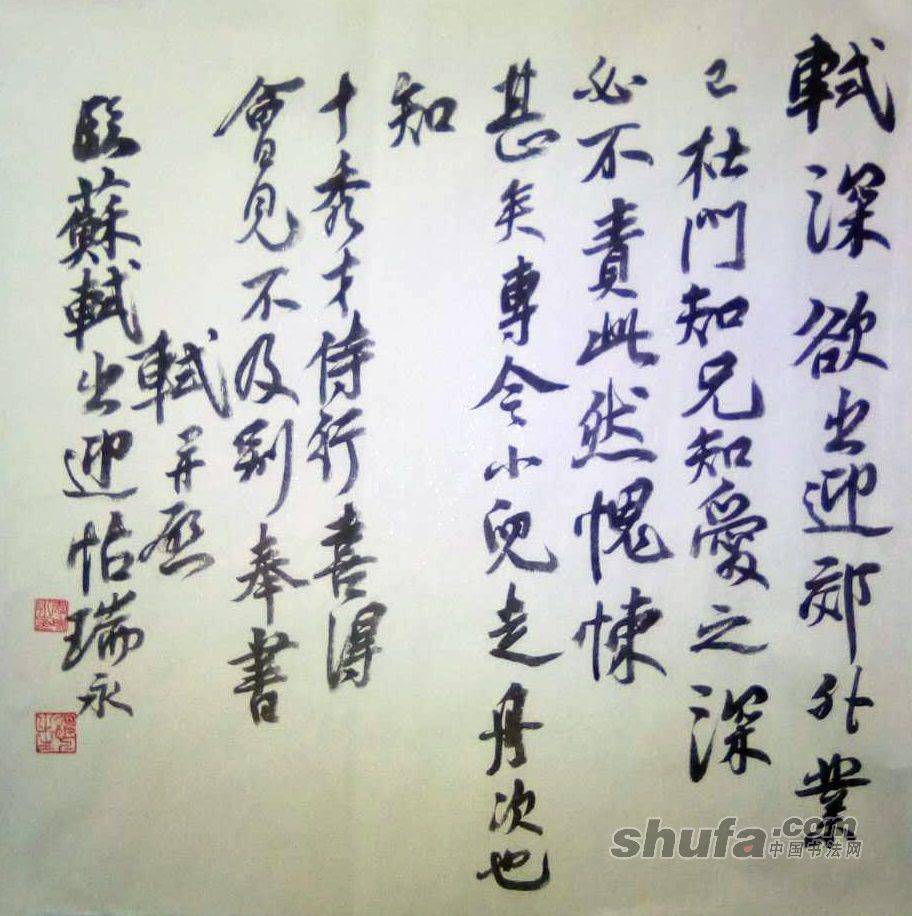 軾深欲出迎郊外業
已杜門知兄知愛之深
必不責此然愧悚
甚矣專令小兒走舟次也
知
十秀才侍行喜得
會見不及別奉書
軾再啟
臨蘇軾出迎帖瑞永
shufa.com
中国书法网